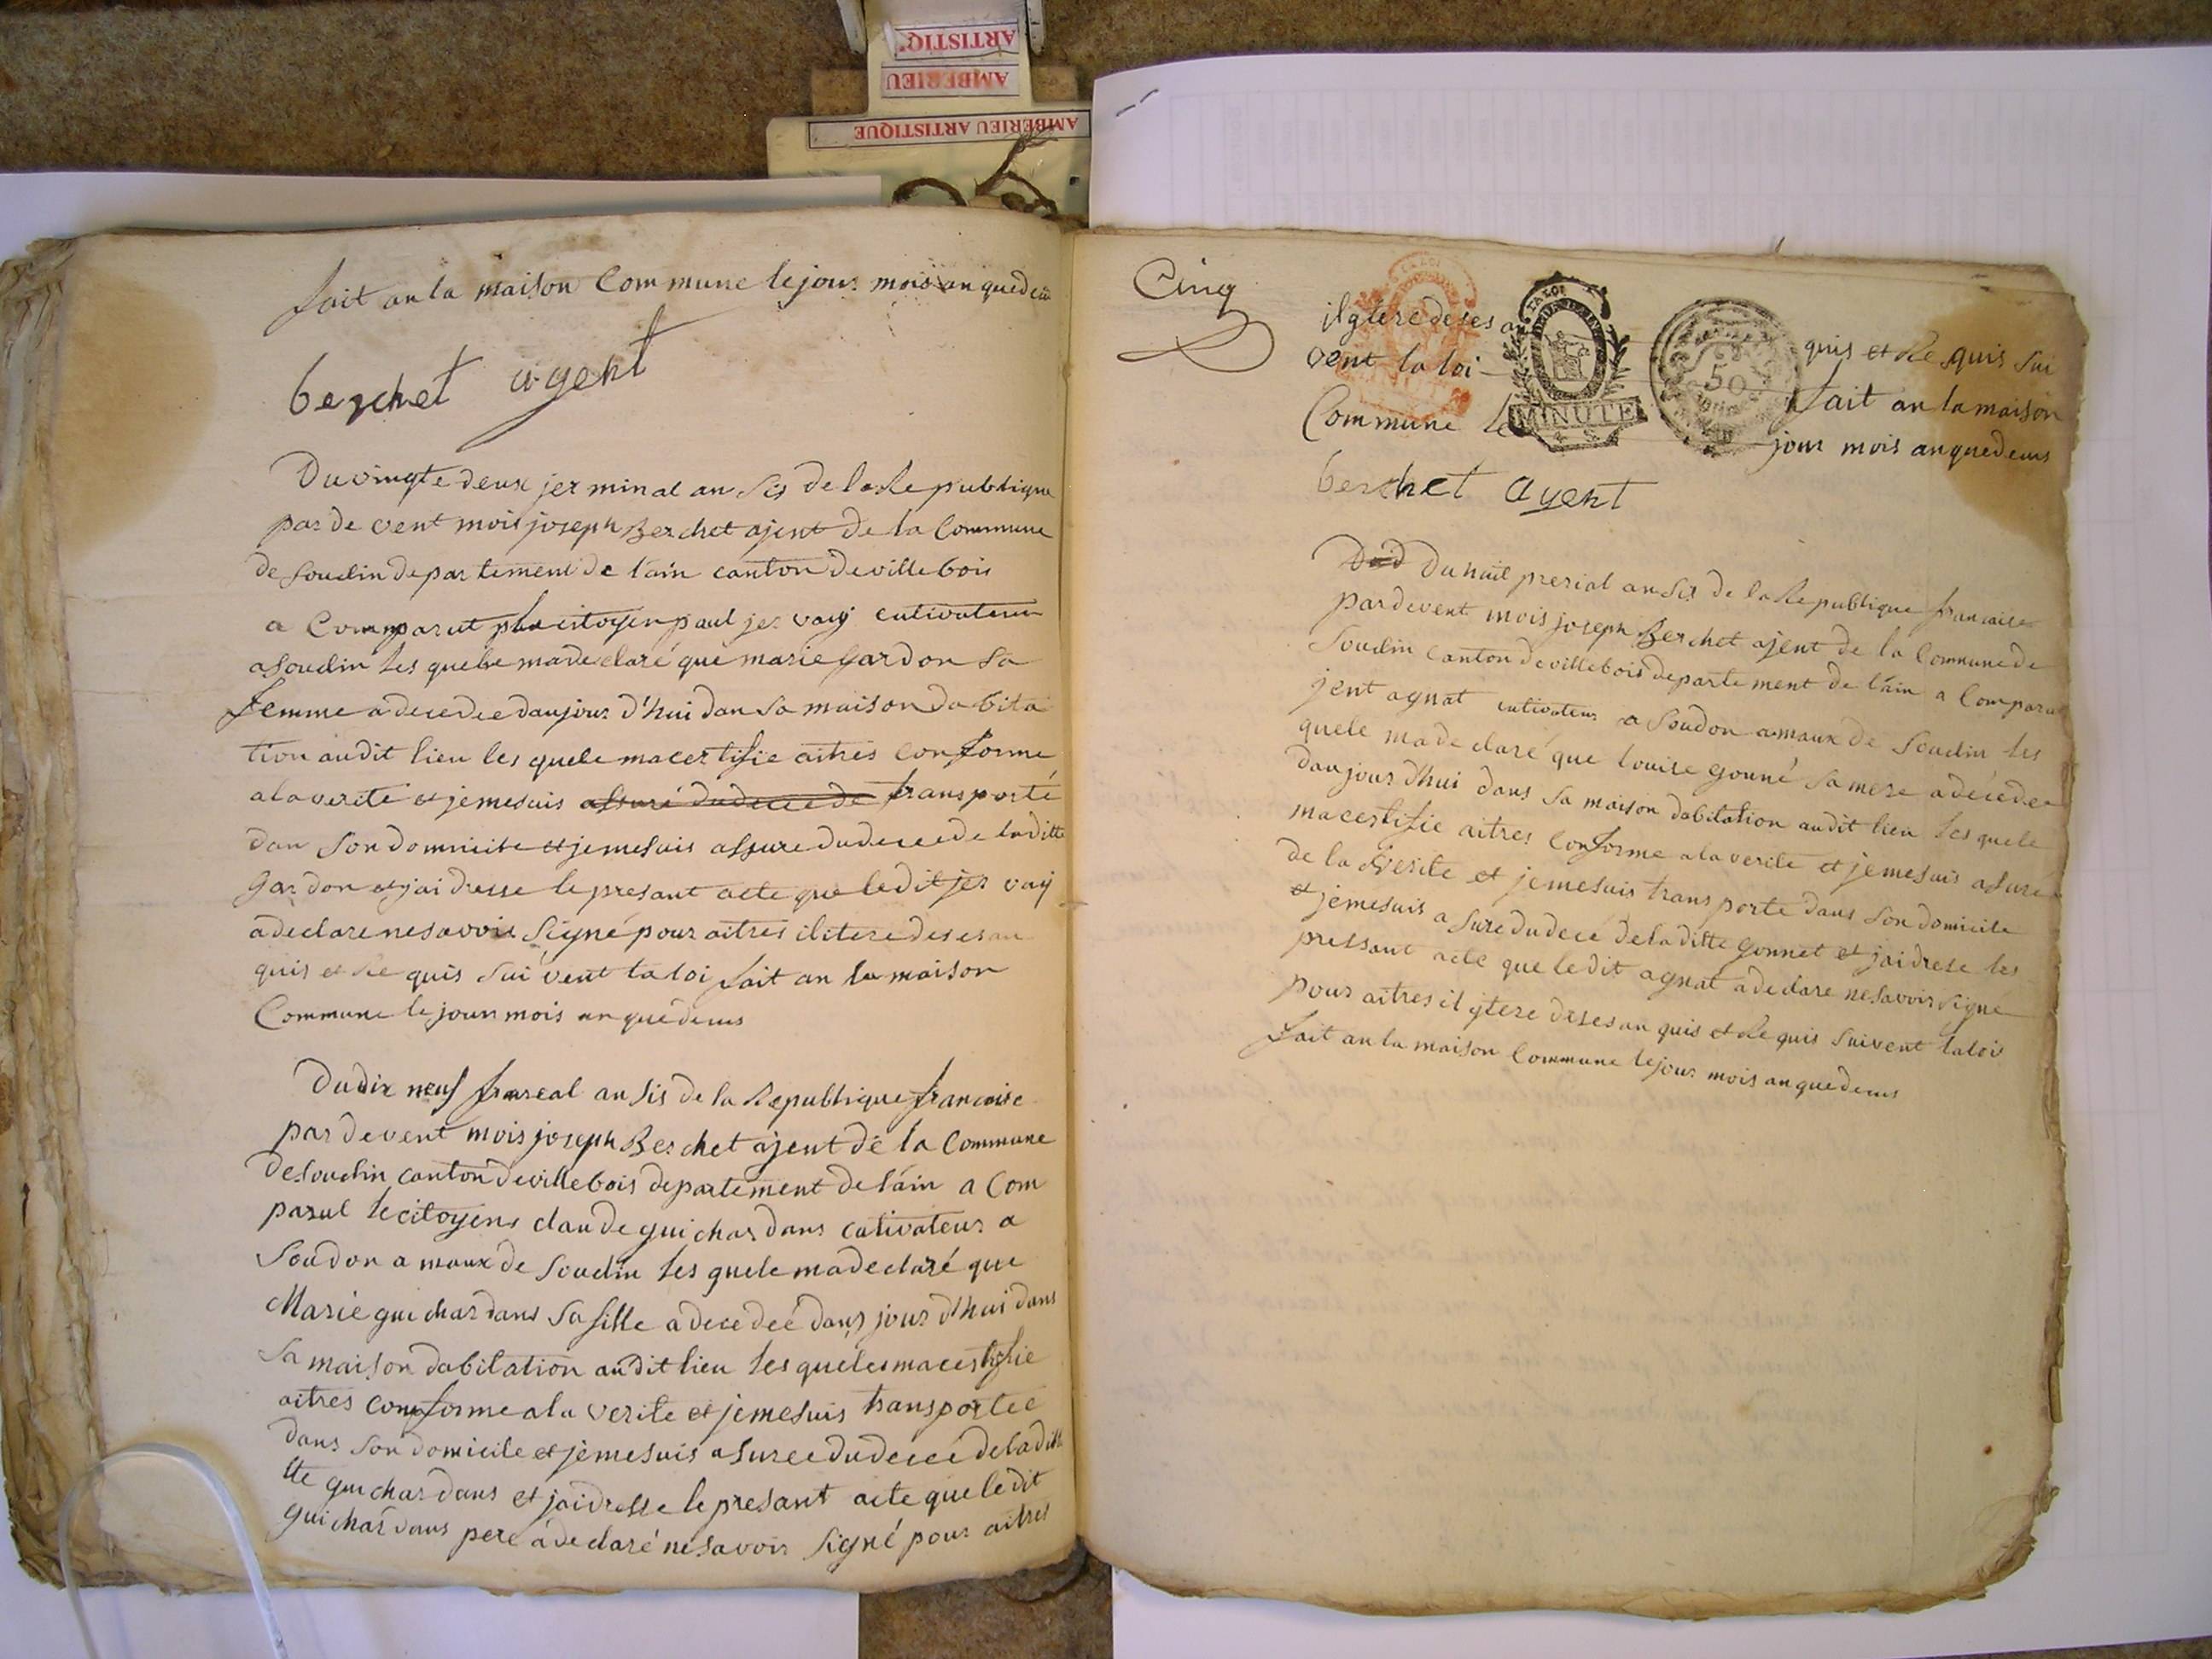 ARTISTIQ
AMBERIEU
AMBERIEU ARTISTIQUE
fait an la maison Commune le jour mois an quedeus
berchet agent
Du vingte deux jerminal an sis de la Republique
par de vent mois joseph Berchet ajent de la Commune
de Soudin departement de l'ain canton de villebois
a Comparut le citoyen paul jer vaij cutivateur
a Soudin les quele ma declaré que marie gardon sa
femme a decedee daujour d'hui dan sa maison dabita
tion audit lieu les quele ma certifie aitres conforme
a la verite et je me suis assuré du decede transporté
dan son domicile et je me suis assure du decede laditte
gardon et jai dresse le presant acte que ledit jer vaij
a declare ne savoir signé pour aitres ilitere de ses an
quis et Re quis suivent la loi fait an la maison
Commune le jour mois an quedeus
Du dix neuf frareal an sis de la Republique francoise
par devent mois joseph Berchet ajent de la Commune
de Soudin canton de villebois departement de l'ain a Com
parut le citoyens claude guichardans cutivateur a
Soudon a maux de Soudin les quele ma declaré que
Marie guichardans sa fille a decedeé daujour d'hui dans
sa maison dabitation audit lieu les queles ma certifie
aitres comforme a la verite et je me suis transportee
dans son domicile et je me suis asuree du decee de ladit
tte guichardans et jai dresse le presant acte que ledit
guichardans pere a declaré ne savoir signé pour aitres
Cinq
il gtere de ses an quis et Re quis sui
vent la loi fait an la maison
Commune le jour mois an quedeus
LA LOI
MINUTE
50
berchet agent
Du huit prerial an sis de la Republique francaise
par devent mois joseph Berchet ajent de la Commune de
Soudin canton de villebois departement de l'ain a Comparu
jent agnat cutivateur a Soudon a maux de Soudin les
quele ma declaré que louise gonné sa mere a décédee
daujour d'hui dans sa maison dabitation audit lieu les quele
ma certifie aitres conforme a la verite et je me suis asuré
de la Verite et je me suis transporte dans son domicile
et je me suis a sure du decé de laditte gonnet et jai drese les
pressant acte que ledit agnat a declare ne savoir signe
pour aitres il ytere de ses an quis et Re quis suivent la loi
fait an la maison Commune le jour mois an quedeus